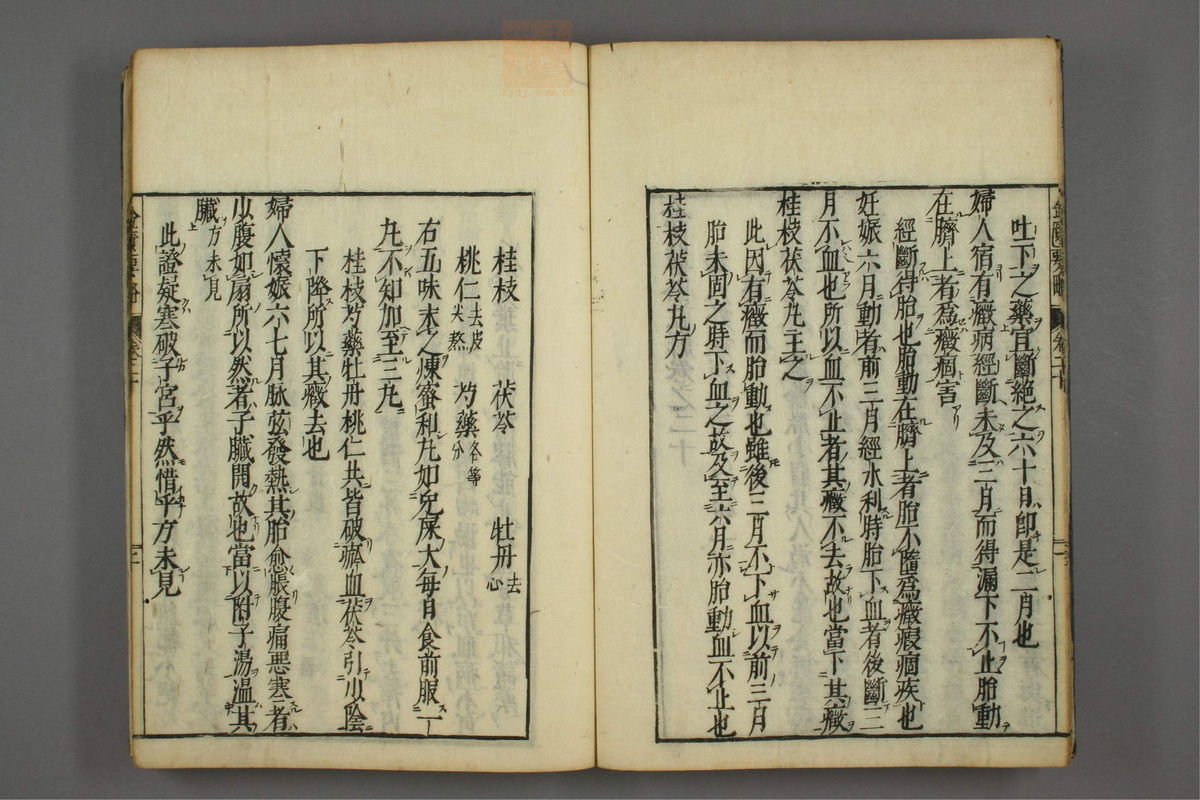 吐下之藥宜斷絕之六十日即是二月也
婦人宿有癥病經斷未及三月而得漏下不止胎動
在臍上者爲癥痼害
經斷得胎也胎動在臍上者胎不墮爲癥瘕痼疾也
妊娠六月動者前三月經水利時胎下血者後斷三
月不血也所以血不止者其癥不去故也當下其癥
桂枝茯苓丸主之
此因有癥而胎動也雖後三月不下血以前三月
胎未固之時下血之故及至六月亦胎動血不止也
桂枝茯苓丸方
桂枝 茯苓 牡丹去心
桃仁去皮尖熬 芍藥各等分
右五味末之煉蜜和丸如兔屎大每日食前服一
丸不知加至三丸
桂枝芍藥牡丹桃仁共皆破瘀血茯苓引以陰
下降所以其癥去也
婦人懷娠六七月脉弦發熱其胎愈脹腹痛惡寒者
少腹如扇所以然者子臟開故也當以附子湯温其
臟方未見
此證疑寒破子宮乎然惜乎方未見
金匱要略 卷二十
二
zynj.com.cn